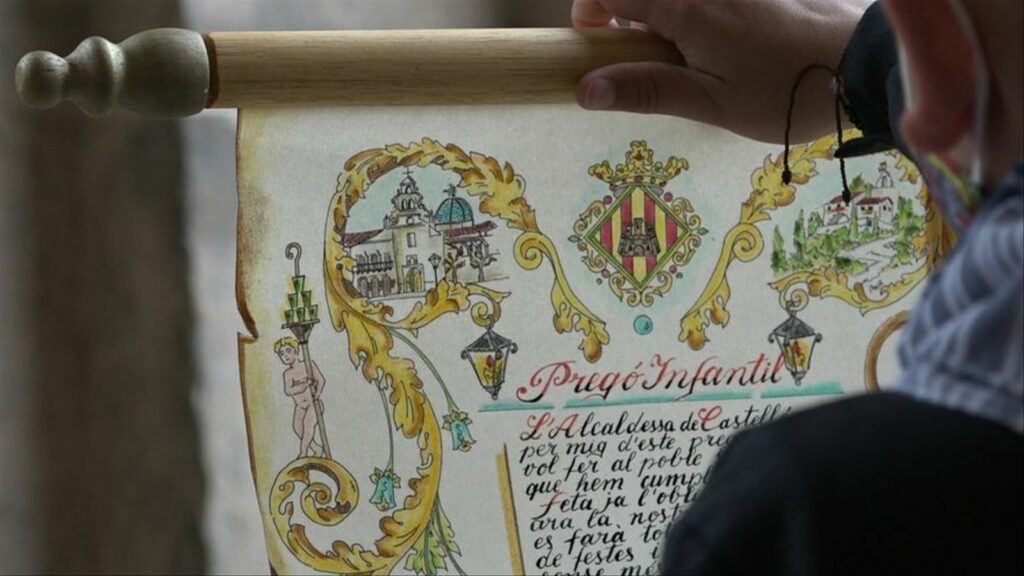 Pregó Infantil
L'Alcaldessa de Castell
per mig d'este
vol fer al poble
que hem
Feta ja l'obl
ara la nost
es farà to
de festes i
sense